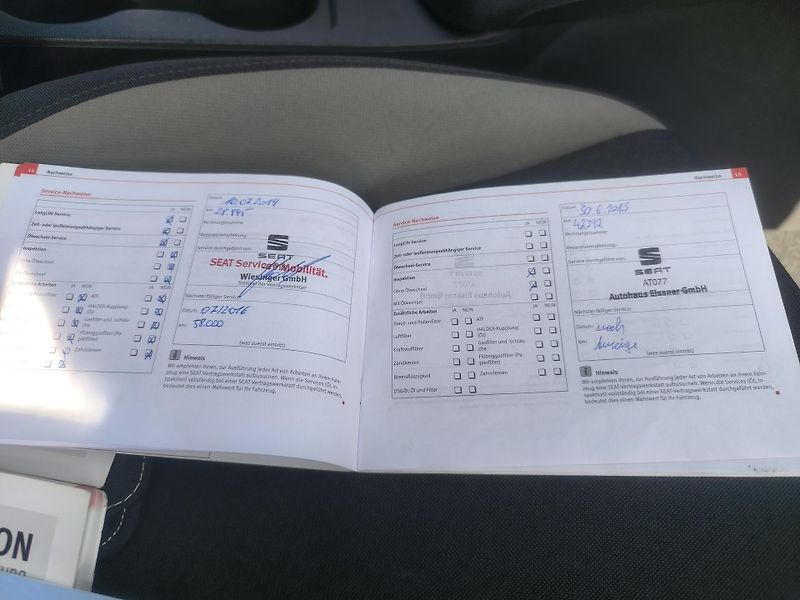 14 Nachweise
Service-Nachweise
JA NEIN
LongLife Service:
Zeit- oder laufleistungsabhängiger Service
Ölwechsel-Service
Inspektion
Ohne Ölwechsel
Mit Ölwechsel
Zusätzliche Arbeiten JA NEIN JA NEIN
ATF
HALDEX-Kupplung (Öl)
Gasfilter und -schläuche
Flüssiggasfilter (Papierfilter)
Zahnriemen
Datum:
10.02.2014
km:
Rechnungsnummer
Reparaturempfehlung:
Service durchgeführt von:
SEAT
SEAT Service Mobilität.
Wiesinger GmbH
Stempel der Vertragswerkstatt
Nächster fälliger Service:
Datum: 02/2016
km: 58.000
(was zuerst eintritt)
i Hinweis
Wir empfehlen Ihnen, zur Ausführung jeder Art von Arbeiten an Ihrem Fahrzeug eine SEAT-Vertragswerkstatt aufzusuchen. Wenn die Services (Öl, Inspektion) vollständig bei einer SEAT-Vertragswerkstatt durchgeführt werden, bedeutet dies einen Mehrwert für Ihr Fahrzeug.
Nachweise 15
Service-Nachweise
JA NEIN
LongLife Service:
Zeit- oder laufleistungsabhängiger Service
Ölwechsel-Service
Inspektion
Ohne Ölwechsel
Mit Ölwechsel
Zusätzliche Arbeiten JA NEIN JA NEIN
Staub- und Pollenfilter ATF
Luftfilter HALDEX-Kupplung (Öl)
Kraftstofffilter Gasfilter und -schläuche
Zündkerzen Flüssiggasfilter (Papierfilter)
Bremsflüssigkeit Zahnriemen
DSG®: Öl und Filter
Datum:
30.6.2015
km:
42392
Rechnungsnummer
Reparaturempfehlung:
Service durchgeführt von:
SEAT
AT077
Autohaus Elssner GmbH
Nächster fälliger Service:
Datum: nach
km: Anzeige
(was zuerst eintritt)
i Hinweis
Wir empfehlen Ihnen, zur Ausführung jeder Art von Arbeiten an Ihrem Fahrzeug eine SEAT-Vertragswerkstatt aufzusuchen. Wenn die Services (Öl, Inspektion) vollständig bei einer SEAT-Vertragswerkstatt durchgeführt werden, bedeutet dies einen Mehrwert für Ihr Fahrzeug.
ON